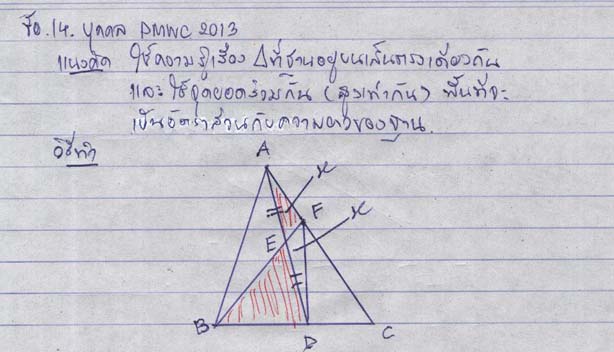 ข้อ.14. บุคคล PMWC 2013
แนวคิด ใช้ความรู้เรื่อง Δที่ฐานอยู่บนเส้นตรงเดียวกัน
และใช้จุดยอดร่วมกัน (สูงเท่ากัน) พื้นที่จะ
เป็นอัตราส่วนกับความยาวของฐาน.
วิธีทำ
A
x
F
x
E
B
D
C